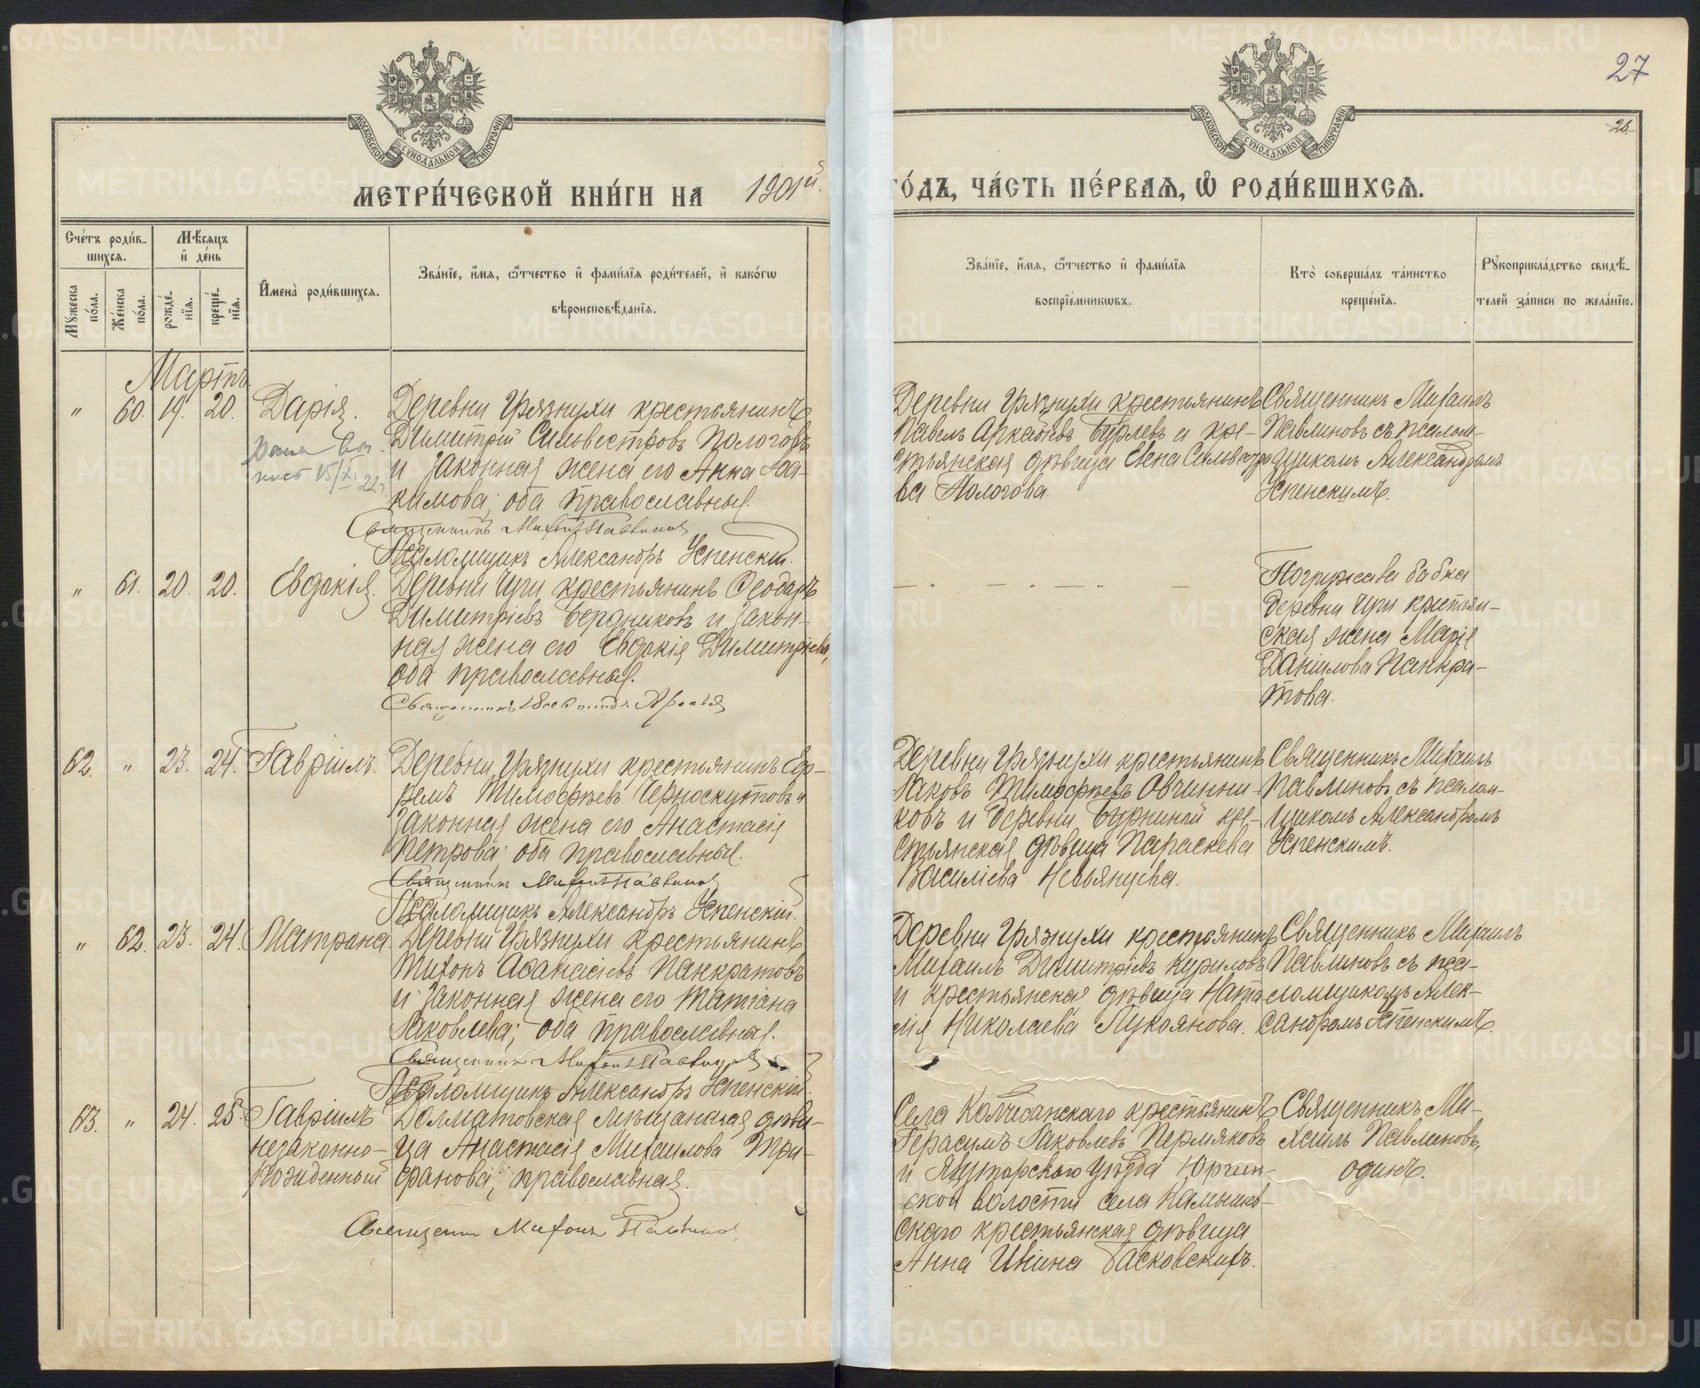 27
25.
МОСКОВСКОЙ СѴНОДАЛЬНОЙ ТИПОГРАФІИ
МОСКОВСКОЙ СѴНОДАЛЬНОЙ ТИПОГРАФІИ
МЕТРИ́ЧЕСКОЙ КНИ́ГИ НА 1901й.
ГО́ДЪ, ЧА́СТЬ ПЕ́РВАЯ, Ѽ РОДИ́ВШИХСЯ.
Сче́тъ роди́в-
шихся.
Мꙋ́жеска по́ла.
Же́нска по́ла.
Мѣ́сяцъ
и҆ де́нь
рожде́-
нїя.
креще́-
нїя.
И҆мена̀ роди́вшихся.
Зва́нїе, и҆́мя, ѻ҆́тчество и҆ фами́лїя роди́телей, и҆ како́гѡ
вѣроисповѣ́данїя.
Зва́нїе, и҆́мя, ѻ҆́тчество и҆ фами́лїя
воспрїе́мниковъ.
Кто̀ соверша́лъ та́инство
креще́нїя.
Рꙋкоприкла́дство свидѣ́-
телей за́писи по жела́нїю.
Мартъ
" 60. 19. 20. Дарія.
Деревни Грязнухи крестьянинъ
Димитрій Сильвестровъ Пологовъ
и законная жена его Анна Іоа-
кимова; оба православные.
Священникъ Михаилъ Павлинов
Псаломщикъ Александръ Успенскій.
Деревни Грязнухи крестьянинъ
Павелъ Аркадіевъ Бурлевъ и кре-
стьянская дѣвица Елена Сильвестро
ва Пологова.
Священникъ Михаилъ
Павлиновъ съ псалом-
щикомъ Александромъ
Успенскимъ.
" 61. 20. 20. Евдокія.
Деревни Чуги крестьянинъ Ѳеодоръ
Димитріевъ Бердниковъ и закон-
ная жена его Евдокія Димитріева,
оба православные.
Священникъ
Погружала бабка
деревни Чуги крестьян-
ская жена Марія
Даніилова Панкра-
това.
62. " 23. 24. Гавріилъ.
Деревни Грязнухи крестьянинъ Еф-
ремъ Тимоѳеевъ Черноскутовъ и
законная жена его Анастасія
Петрова; оба православные.
Священникъ Михаилъ Павлинов
Псаломщикъ Александръ Успенскій.
Деревни Грязнухи крестьянинъ
Іаковъ Тимоѳеевъ Овчинни-
ковъ и деревни Бурниной кре-
стьянская дѣвица Параскева
Василіева Невьянцева.
Священникъ Михаилъ
Павлиновъ съ псалом-
щикомъ Александромъ
Успенскимъ.
" 62. 23. 24. Матрона
Деревни Грязнухи крестьянинъ
Тихонъ Аѳанасіевъ Панкратовъ
и законная жена его Татіана
Іаковлева; оба православные.
Священникъ Михаилъ Павлинов
Псаломщикъ Александръ Успенскій.
Деревни Грязнухи крестьянинъ
Михаилъ Димитріевъ Куриловъ
и крестьянская дѣвица Ната
лія Николаева Лукоянова.
Священникъ Михаилъ
Павлиновъ съ пса-
ломщикомъ Алек-
сандромъ Успенскимъ.
63. " 24. 25. Гавріилъ
незаконно-
рожденный
Долматовская мѣщанская дѣви-
ца Анастасія Михаилова Три-
фанова; православная.
Священник Михаил Павлинов
Села Колчеданскаго крестьянинъ
Герасимъ Іаковлевъ Пермяковъ
и Ялуторскаго уѣзда Юргин-
ской волости села Камышев-
скаго крестьянская дѣвица
Анна Ивнина Басковскихъ.
Священникъ Ми-
хаилъ Павлиновъ,
одинъ.
METRIKI.GASO-URAL.RU